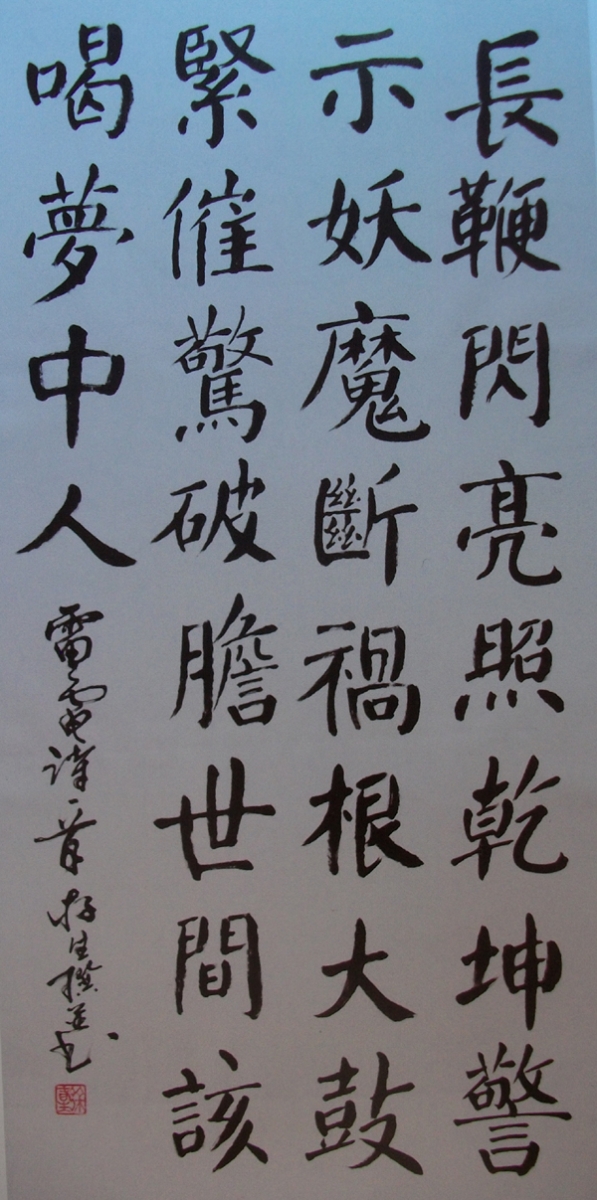 長鞭閃亮照乾坤警
示妖魔斷禍根大鼓
緊催驚破膽世間該
喝夢中人
雷電詩一首 存生撰並書